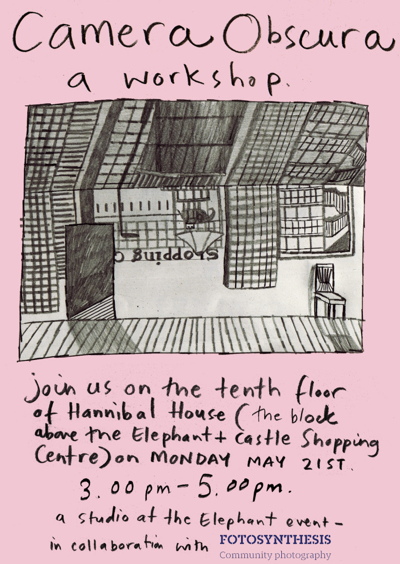 Camera Obscura
a workshop.
Shopping C
join us on the tenth floor
of Hannibal House (the block
above the Elephant + Castle Shopping
Centre) on MONDAY MAY 21ST.
3.00 pm - 5.00 pm.
a studio at the Elephant event -
in collaboration with FOTOSYNTHESIS
Community photography